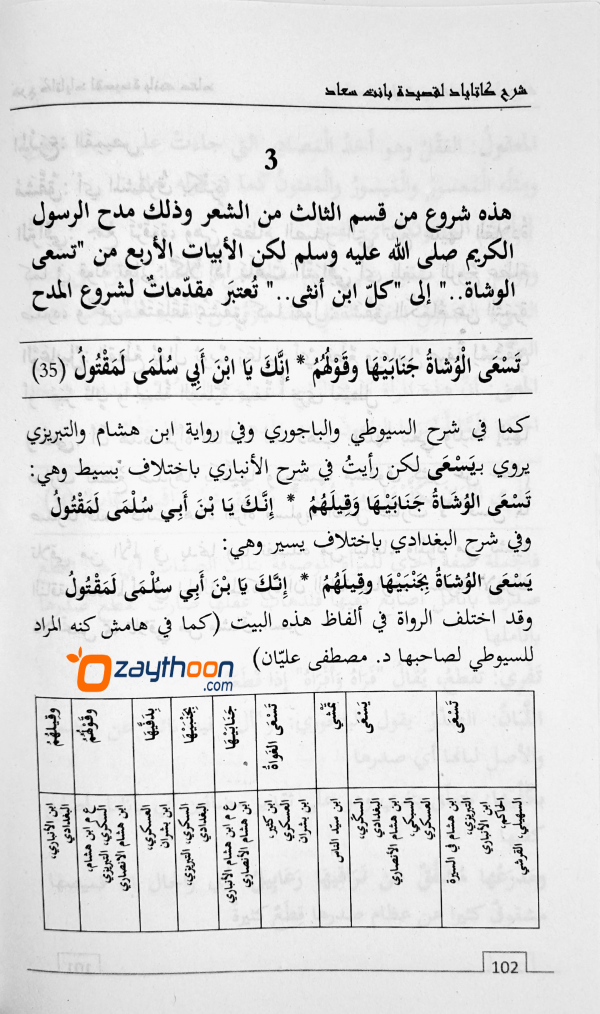 شرح كاتاياد لقصيدة بانت سعاد
3
هذه شروع من قسم الثالث من الشعر وذلك مدح الرسول
الكريم صلى الله عليه وسلم لكن الأبيات الأربع من "تسعى
الوشاة.." إلى "كلّ ابن أنثى.." تُعتبَر مقدّماتٌ لشروع المدح
تَسْعَى الْوُشَاةُ جَنَابَيْهَا وقَوْلُهُمُ * إنَّكَ يَا ابْنَ أَبِي سُلْمَى لَمَقْتُولُ (35)
كما في شرح السيوطي والباجوري وفي رواية ابن هشام والتبريزي
يروي بـيَسْعَى لكن رأيتُ في شرح الأنباري باختلاف بسيط وهي:
تَسْعَى الوُشَاةُ جَنَابَيْهَا وَقِيلَهُمُ * إِنَّكَ يَا بْنَ أَبِي سُلْمَى لَمَقْتُولُ
وفي شرح البغدادي باختلاف يسير وهي:
يَسْعَى الوُشَاةُ بِجَنْبَيْهَا وقِيلَهُم * إِنَّكَ يَا بْنَ أَبي سُلْمَى لَمَقْتُولُ
وقد اختلف الرواة في ألفاظ هذه البيت (كما في هامش كنه المراد
للسيوطي لصاحبها د. مصطفى عليّان)
zaythoon
.com
تَسْعَى
يَسْعَى
تَمْشي
تَسْعَى الغُواةُ
جَنَابَيْهَا
بِجَنْبَيْهَا
بِدَفَّيْهَا
وقَوْلُهُمُ
وقِيلَهُمُ
السهيلي، القرشي
الحاكم،
ابن الأنباري
التبريزي،
ابن هشام في السيرة
العسكري
السبكي،
ابن هشام الأنصاري
البغدادي
السكري،
ابن سيّد الناس
ابن كثير،
العسكري
ابن بشران
ع م ابن هشام
ابن هشام الأنباري
السكري، التبريزي،
البغدادي
العسكري،
ابن بشران
ع م ابن هشام،
السكري، التبريزي
ابن هشام الأنصاري
ابن الأنباري،
البغدادي
102